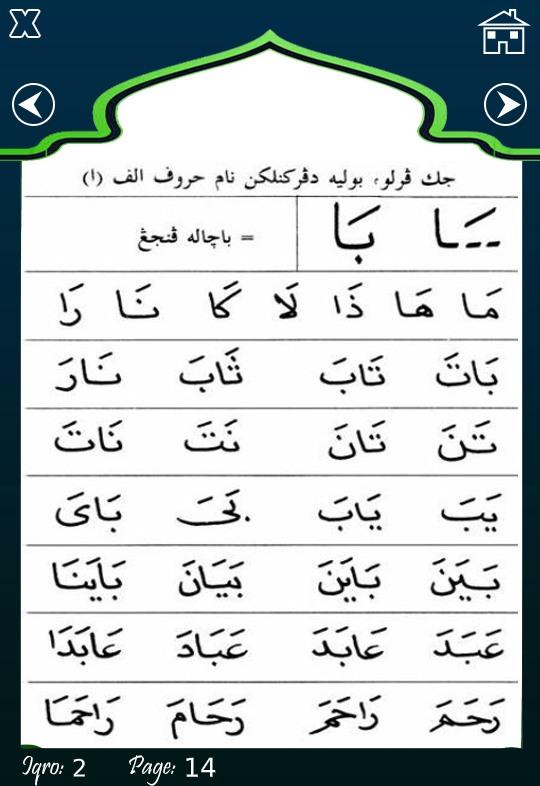 جك ڤرلو، بوليه دڤركنلكن نام حروف الف (ا)
ـَـا بَا = باچاله ڤنجڠ
مَا هَا ذَا لَا كَا نَا رَا
بَاتَ تَابَ ثَابَ نَارَ
تَنَ تَانَ نَتَ نَاتَ
يَبَ يَابَ بَىَ بَاىَ
بَيَنَ بَايَنَ بَيَانَ بَايَنَا
عَبَدَ عَابَدَ عَبَادَ عَابَدَا
رَحَمَ رَاحَمَ رَحَامَ رَاحَمَا
Iqro: 2 Page: 14